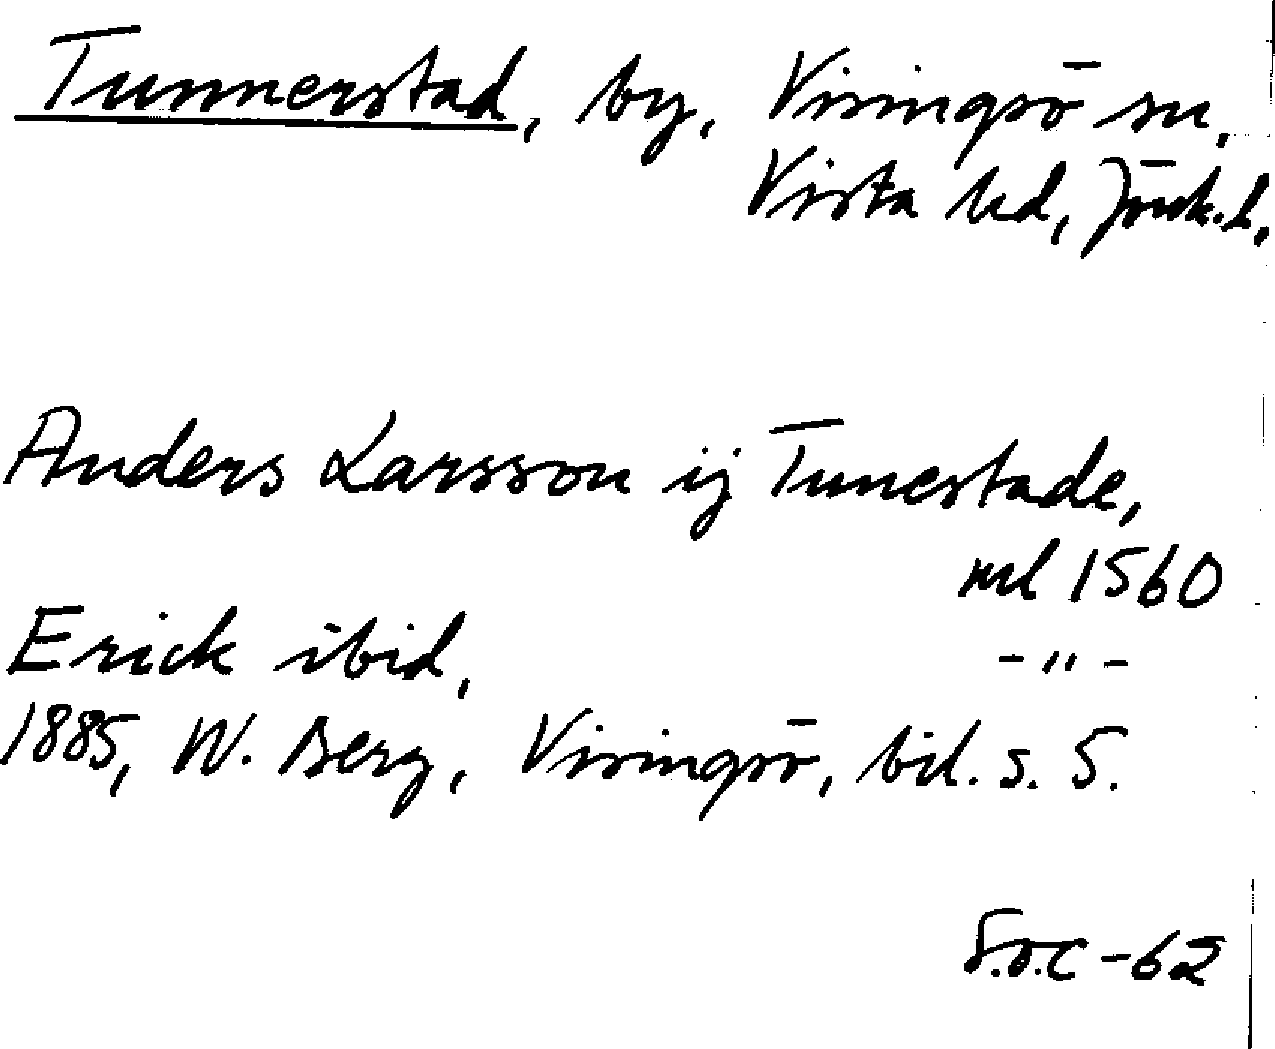 Tunnerstad, by, Visingsö sn,
Vista hd, Jönk.l.
Anders Larsson ij Tunestade,
ml 1560
Erick ibid, -"-
1885, W. Berg, Visingsö, bil. s. 5.
S.ö.C -62